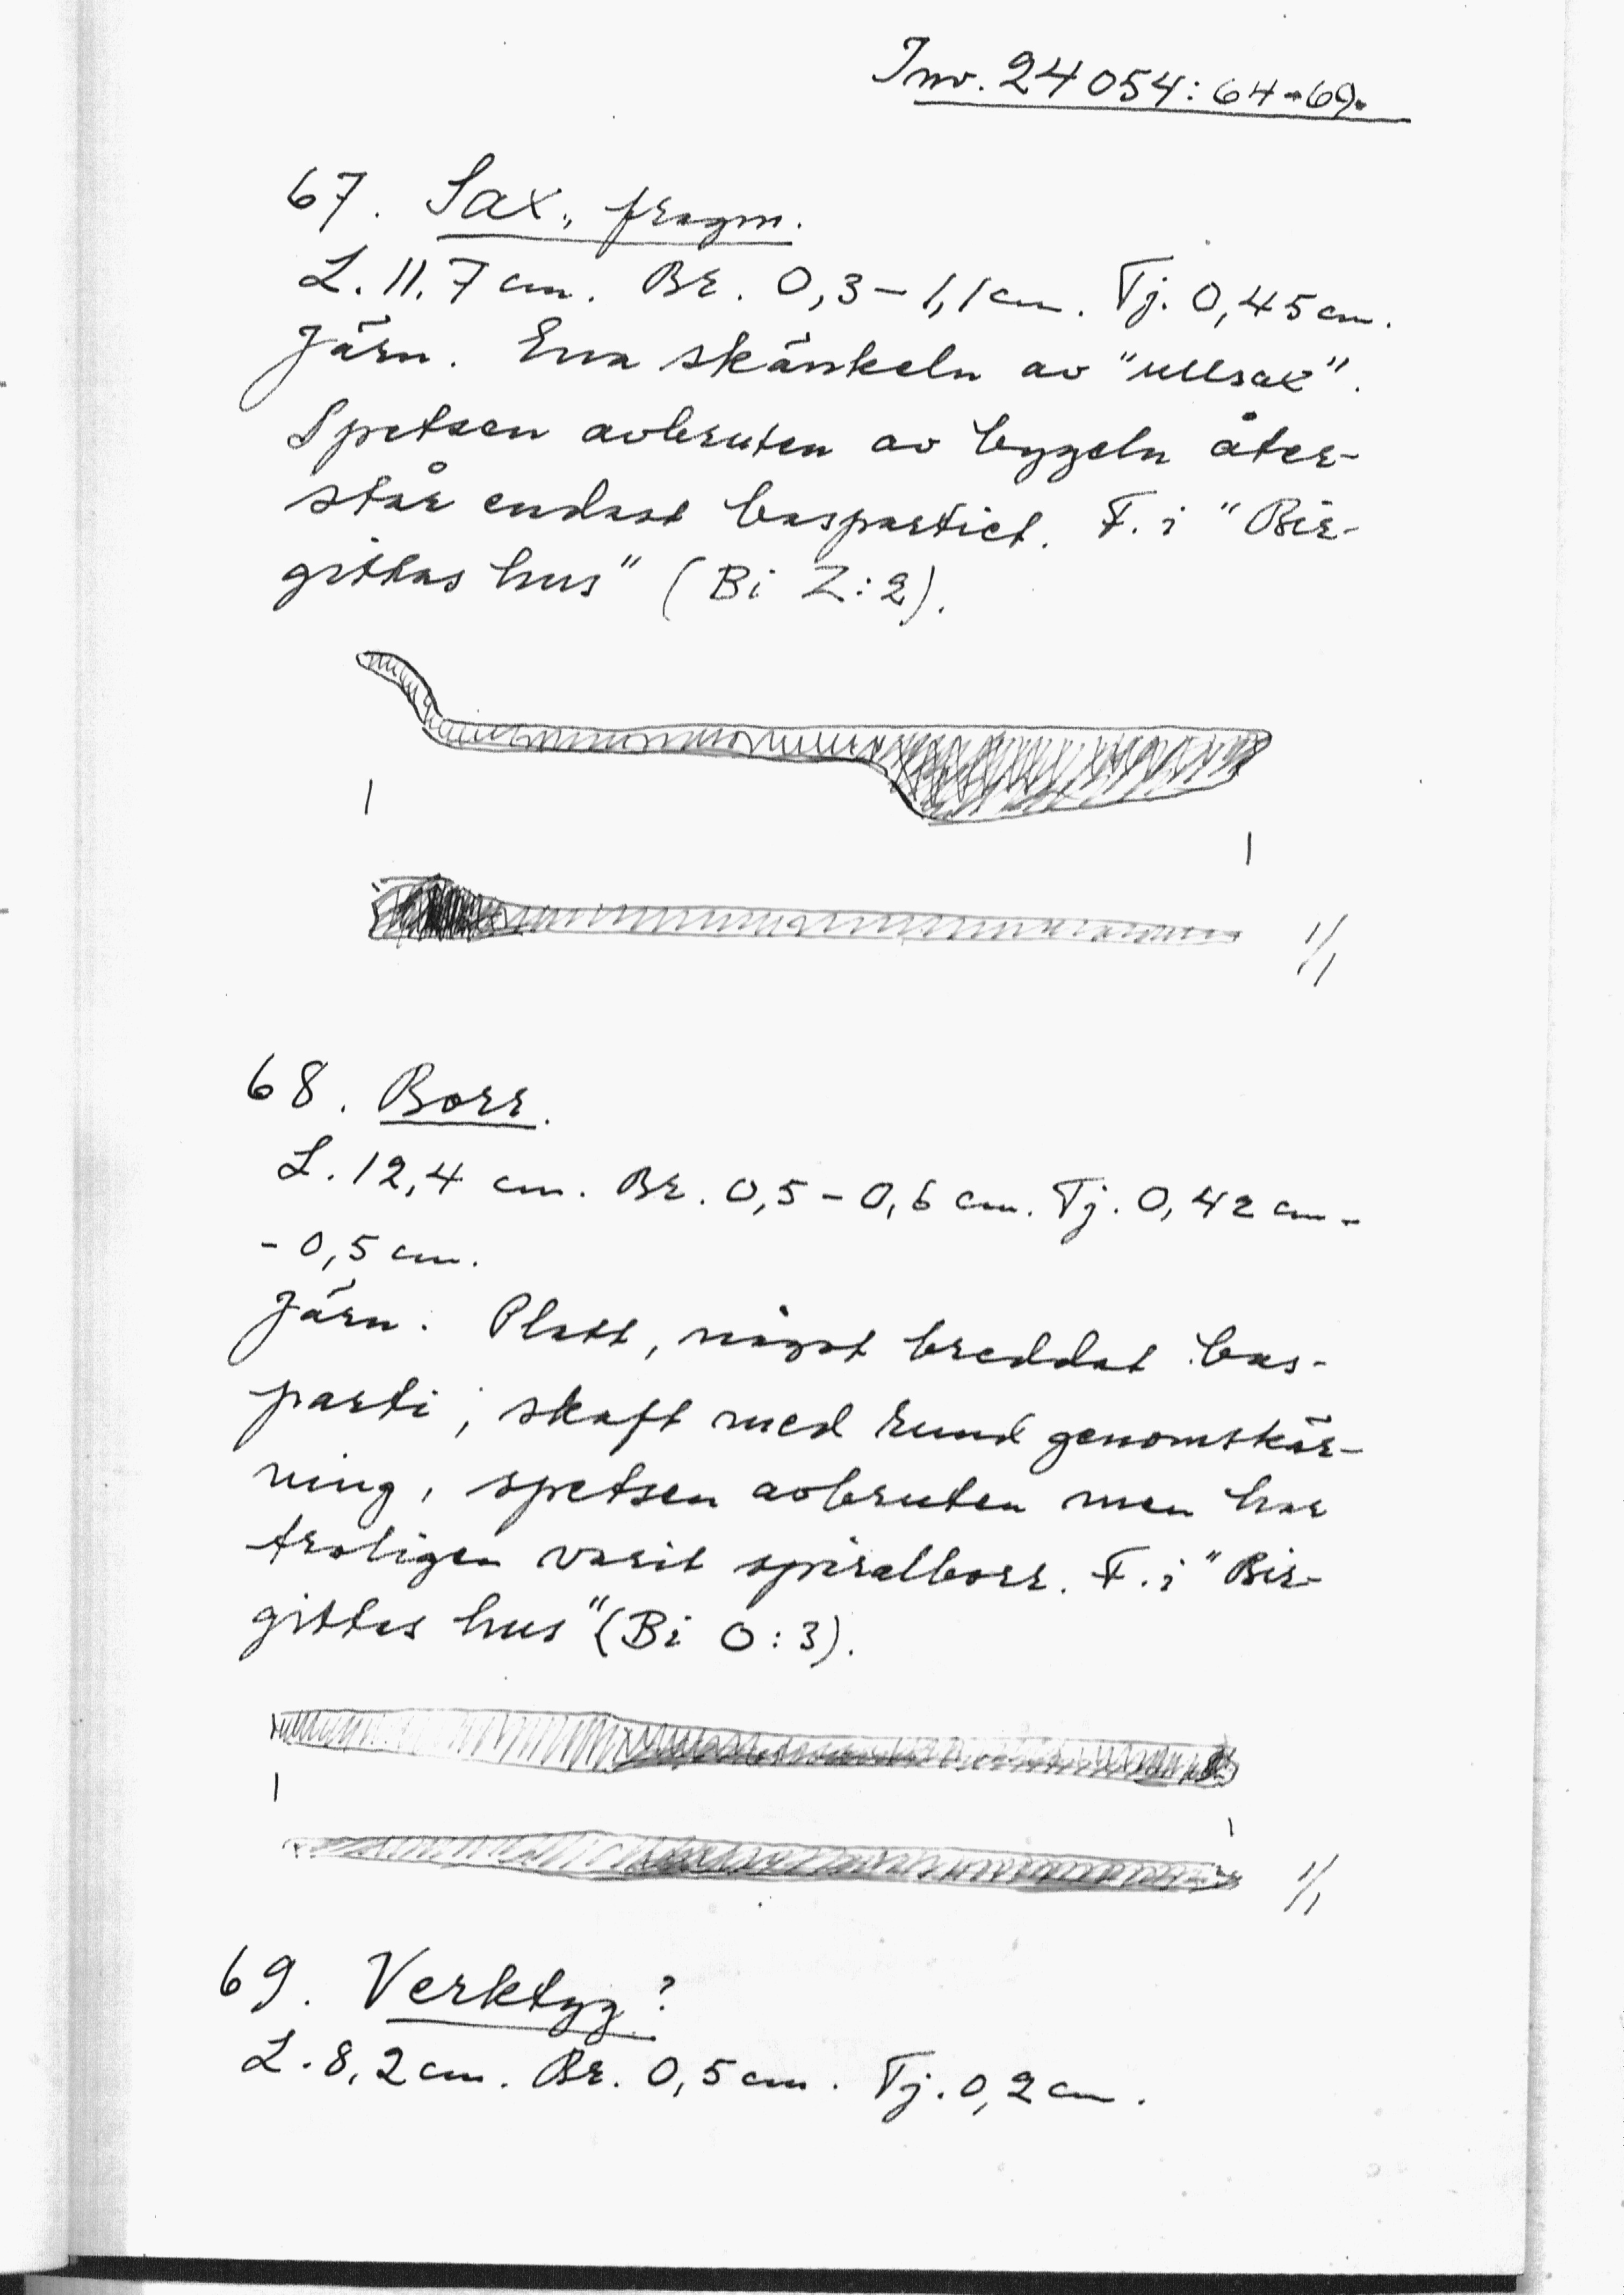 Inv. 24054:64-69.
67. Sax, fragm.
L. 11,7 cm. Br. 0,3 - 1,1 cm. Tj. 0,45 cm.
Järn. Ena skänkeln av "ullsax".
Spetsen avbruten av bygeln åter-
står endast baspartiet. F. i "Bir-
gittas hus" (Bi Z:2).
1/1
68. Borr.
L. 12,4 cm. Br. 0,5 - 0,6 cm. Tj. 0,42 cm -
- 0,5 cm.
Järn. Platt, något breddat bas-
parti, skaft med rund genomskär-
ning, spetsen avbruten men har
troligen varit spiralborr. F. i "Bir-
gittas hus" (Bi O:3).
1/1
69. Verktyg?
L. 8,2 cm. Br. 0,5 cm. Tj. 0,2 cm.